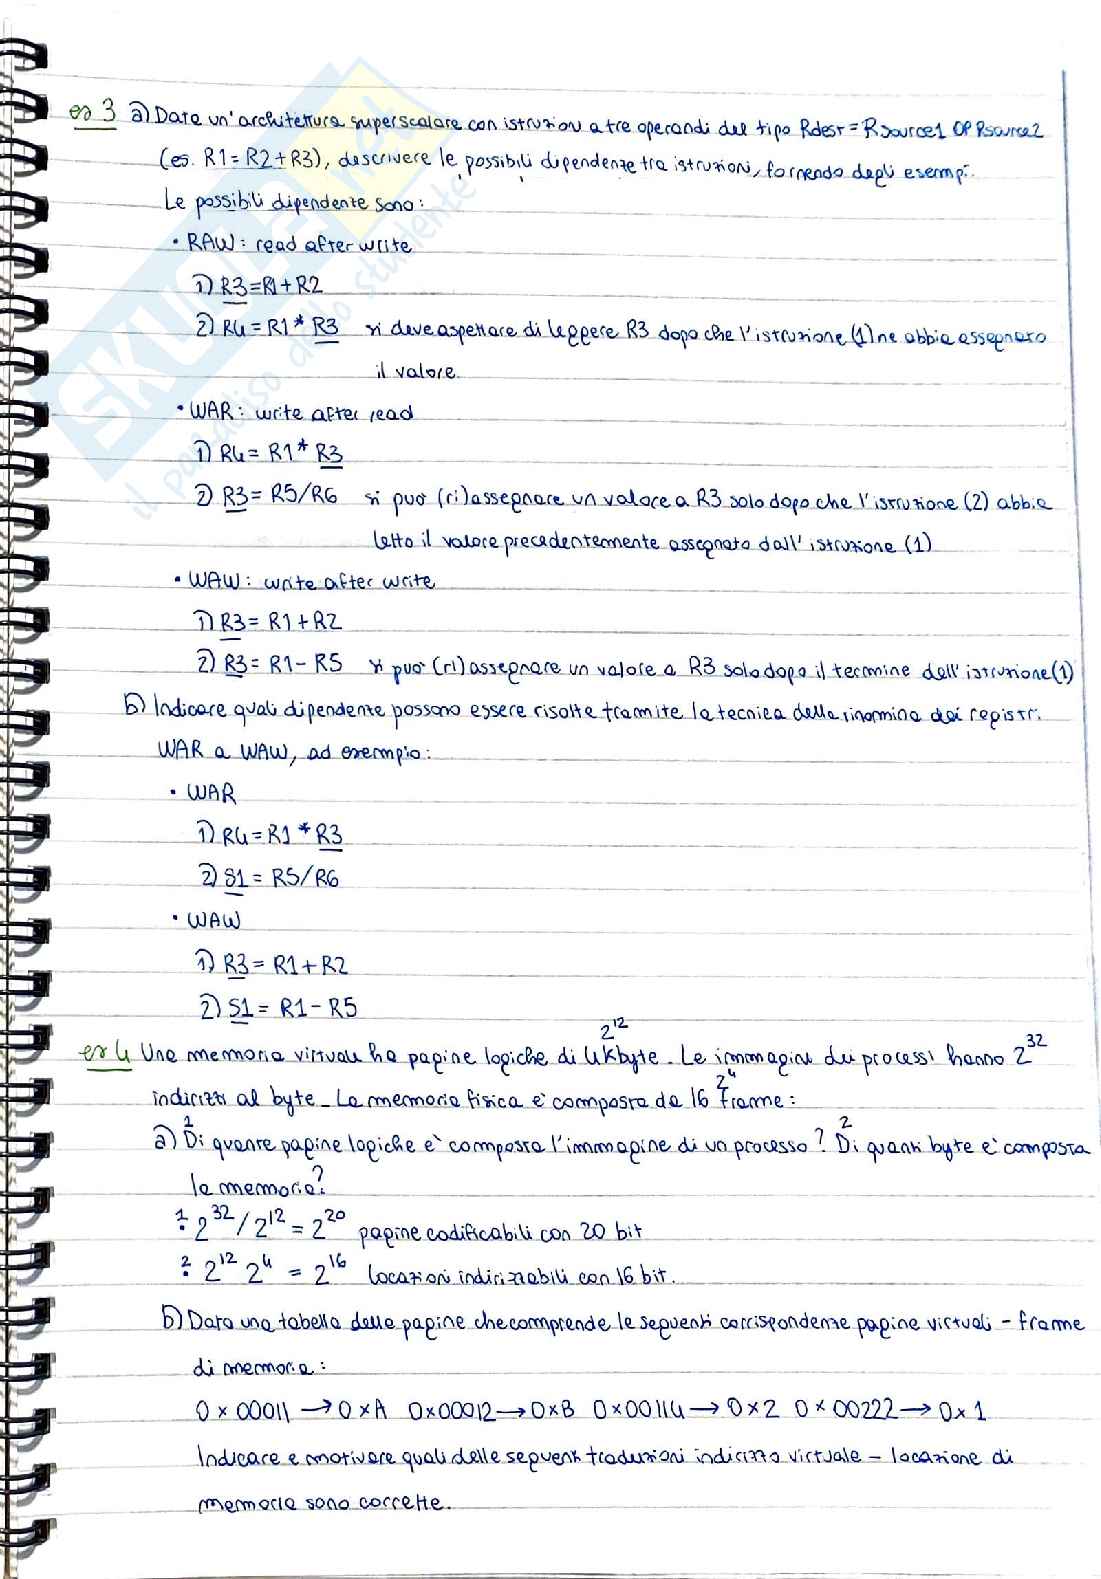 es 3 a) Date un'architettura superscalare con istruzioni a tre operandi del tipo Rdest = Rsource1 OP Rsource2
(es. R1 = R2 + R3), descrivere le possibili dipendenze tra istruzioni, fornendo degli esempi.
Le possibili dipendenze sono:
• RAW: read after write
1) R3 = R1 + R2
2) R4 = R1 * R3 si deve aspettare di leggere R3 dopo che l'istruzione (1) ne abbia assegnato
il valore.
• WAR: write after read
1) R4 = R1 * R3
2) R3 = R5/R6 si può (ri)assegnare un valore a R3 solo dopo che l'istruzione (2) abbia
letto il valore precedentemente assegnato dall'istruzione (1)
• WAW: write after write
1) R3 = R1 + R2
2) R3 = R1 - R5 si può (ri)assegnare un valore a R3 solo dopo il termine dell'istruzione (1)
b) Indicare quali dipendenze possono essere risolte tramite la tecnica della rinomina dei registri.
WAR a WAW, ad esempio:
• WAR
1) R4 = R1 * R3
2) S1 = R5/R6
• WAW
1) R3 = R1 + R2
2) S1 = R1 - R5
2^12
es 4 Una memoria virtuale ha pagine logiche di 4Kbyte. Le immagini dei processi hanno 2^32
2^4
indirizzi al byte. La memoria fisica è composta da 16 frame:
1 2
a) Di quante pagine logiche è composta l'immagine di un processo? Di quanti byte è composta
la memoria?
1: 2^32 / 2^12 = 2^20 pagine codificabili con 20 bit
2: 2^12 2^4 = 2^16 locazioni indirizzabili con 16 bit.
b) Data una tabella delle pagine che comprende le seguenti corrispondenze pagine virtuali - frame
di memoria:
0x00011 → 0xA 0x00012 → 0xB 0x00114 → 0x2 0x00222 → 0x1
Indicare e motivare quali delle seguenti traduzioni indirizzo virtuale - locazione di
memoria sono corrette.
SKUOLA.net
il paradiso dello studente